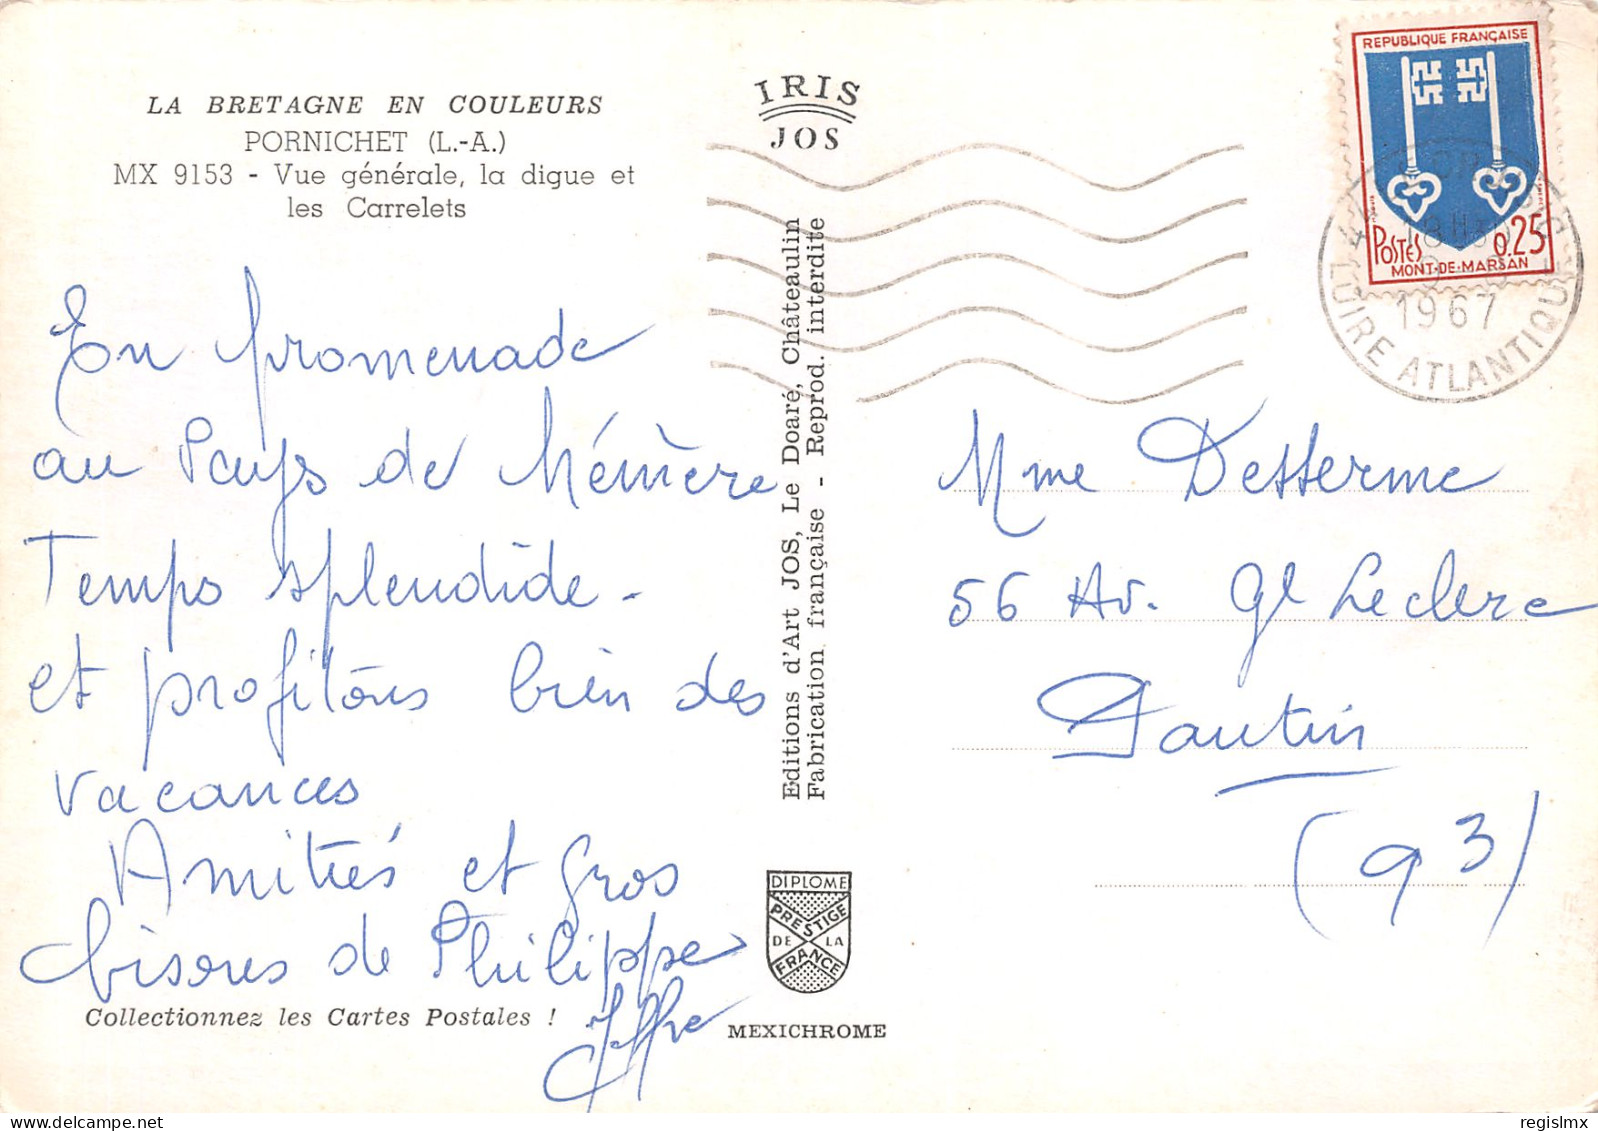 LA BRETAGNE EN COULEURS
PORNICHET (L.-A.)
MX 9153 - Vue générale, la digue et
les Carrelets
En promenade
au Pays de Mémère
Temps splendide -
et profitons bien des
vacances
Amitiés et gros
bisous de Philippe
Collectionnez les Cartes Postales !
IRIS
JOS
Editions d'Art JOS, Le Doaré, Châteaulin
Fabrication française - Reprod. interdite
DIPLOME
PRESTIGE
DE LA
FRANCE
MEXICHROME
REPUBLIQUE FRANÇAISE
POSTES 0.25
MONT-DE-MARSAN
44
18H30
1967
LOIRE ATLANTIQUE
Mme Desserme
56 Av. Gl Leclerc
Pantin
(93)
regislmx